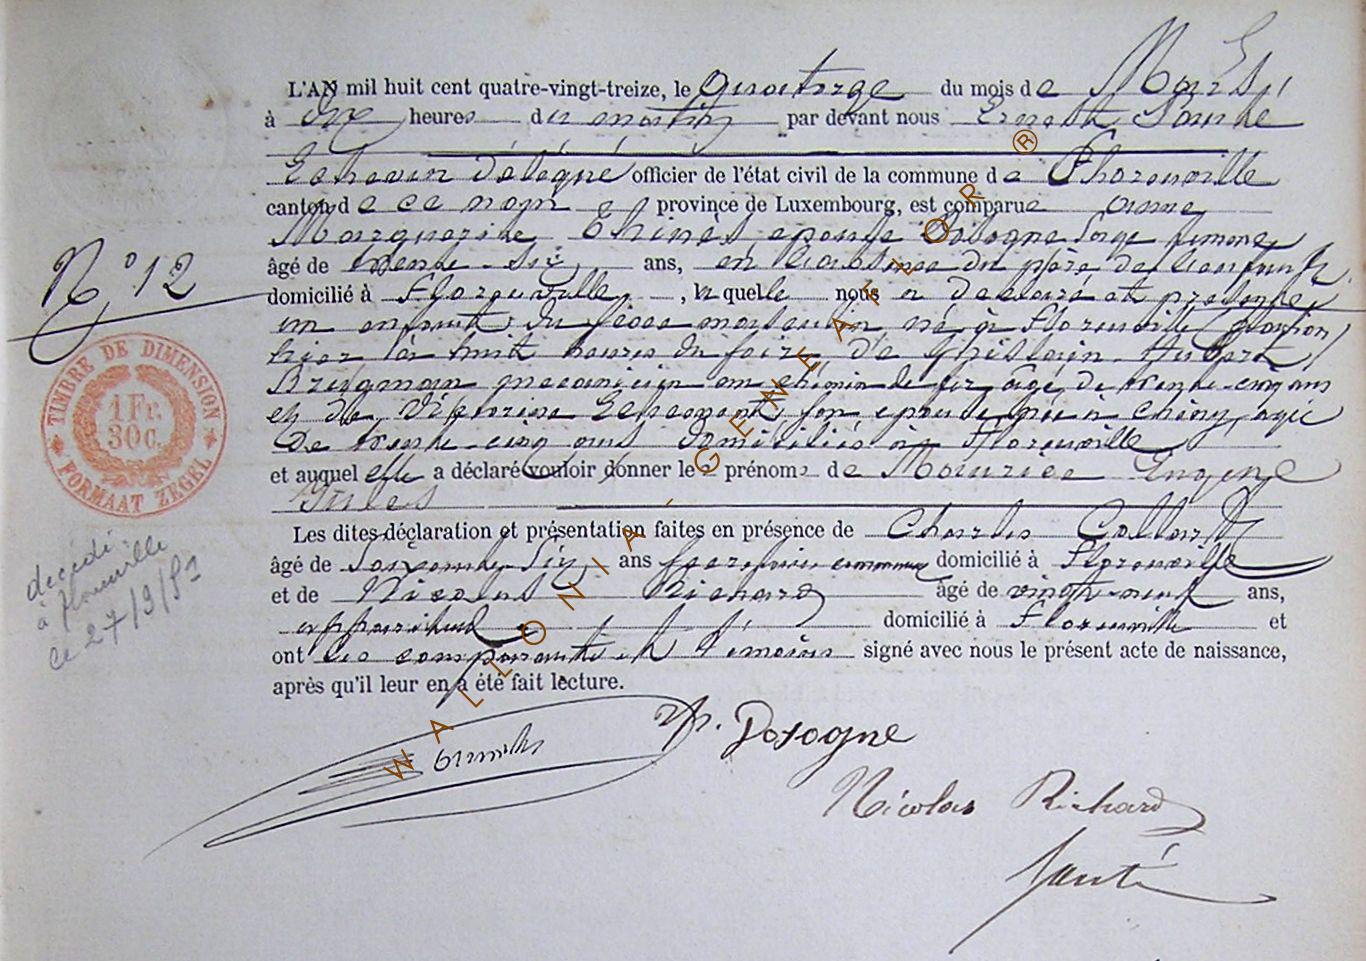 L'AN mil huit cent quatre-vingt-treize, le quatorze du mois de Mars
à dix heures du matin par devant nous Ernest Santé
Echevin délégué officier de l'état civil de la commune de Florenville
canton de ce nom province de Luxembourg, est comparue anne
Marguerite Thinès, epouse Dosogne sage femme
âgé de trente-six ans, en l'absence du père de l'enfant
domicilié à Florenville, la quelle nous a declaré et presenté
un enfant du sexe masculin, né à Florenville
hier à huit heures du soir, de Ghislain Hubert
mecanicien au chemin de fer âgé de trente-cinq ans
et de son epouse née à Chiny, agée
de trente-cinq ans domiciliés à Florenville
et auquel elle a déclaré vouloir donner les prénoms de Maurice Eugene
Jules
Les dites déclaration et présentation faites en présence de Charles Collard
âgé de soixante-six ans domicilié à Florenville
et de Nicolas Richard âgé de vingt-neuf ans,
appariteur domicilié à Florenville et
ont les comparante et témoins signé avec nous le présent acte de naissance,
après qu'il leur en a été fait lecture.
N° 12
TIMBRE DE DIMENSION
1 Fr.
30 c.
FORMAAT ZEGEL
décédé
à Florenville
le 27/9/82
M. Dosogne
Nicolas Richard
Santé
WALLONIA - GENEAFLOR ®